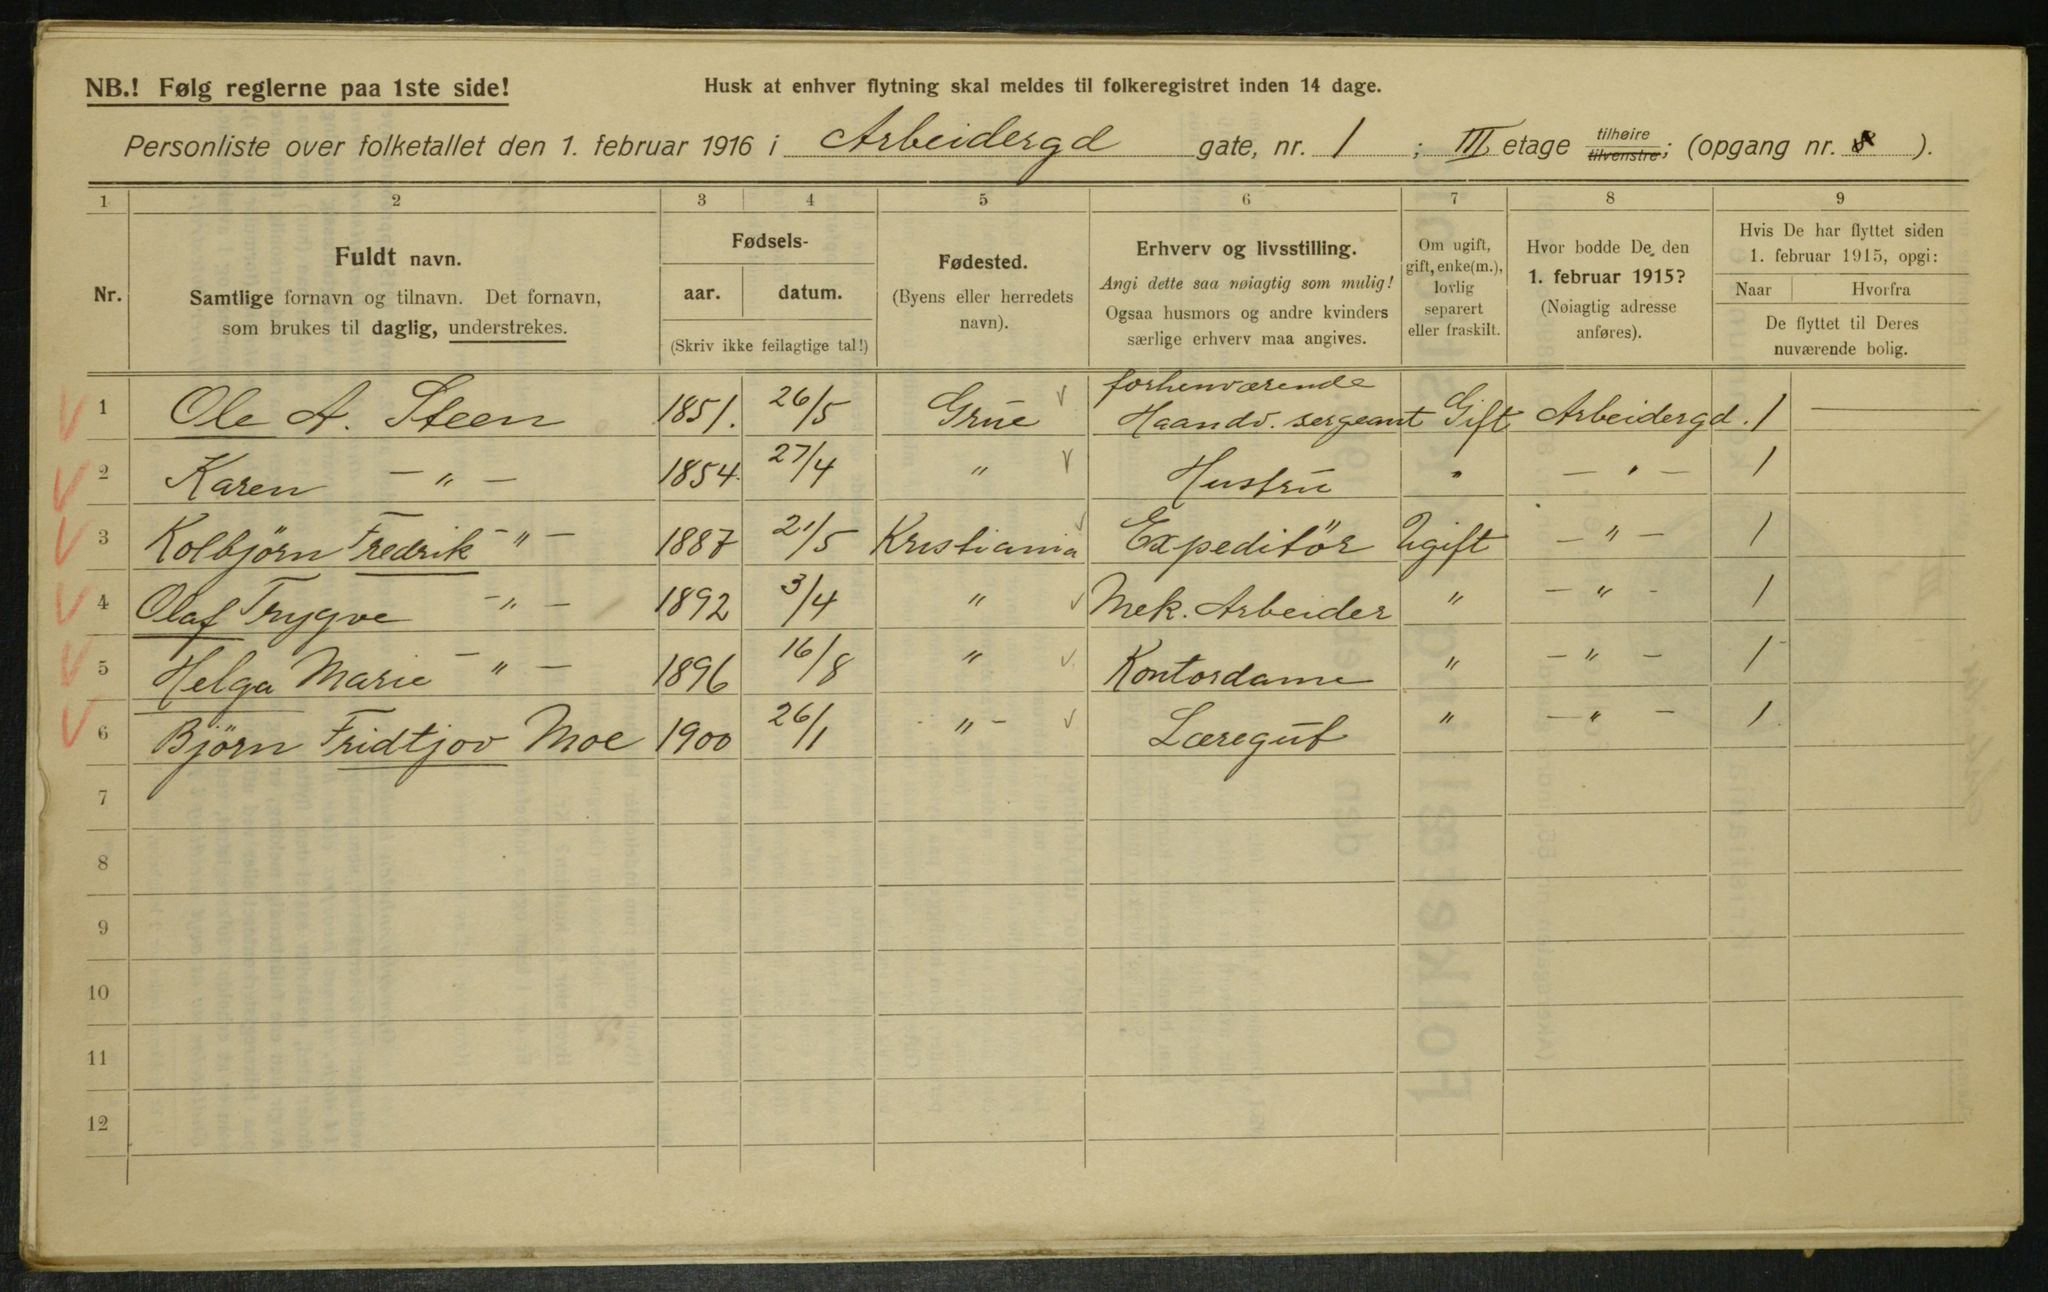 NB.! Følg reglerne paa 1ste side!
Husk at enhver flytning skal meldes til folkeregistret inden 14 dage.
Personliste over folketallet den 1. februar 1916 i Arbeidergd gate, nr. 1; III etage tilhøire tilvenstre; (opgang nr. ).
1 2 3 4 5 6 7 8 9
Nr.
Fuldt navn.
Samtlige fornavn og tilnavn. Det fornavn,
som brukes til daglig, understrekes.
Fødsels-
aar. datum.
(Skriv ikke feilagtige tal!)
Fødested.
(Byens eller herredets
navn).
Erhverv og livsstilling.
Angi dette saa nøiagtig som mulig!
Ogsaa husmors og andre kvinders
særlige erhverv maa angives.
Om ugift,
gift, enke(m.),
lovlig
separert
eller fraskilt.
Hvor bodde De den
1. februar 1915?
(Nøiagtig adresse
anføres).
Hvis De har flyttet siden
1. februar 1915, opgi:
Naar Hvorfra
De flyttet til Deres
nuværende bolig.
1 Ole A. Steen 1851. 26/5 Grue forhenværende Haandv. sergeant Gift Arbeidergd. 1 —
2 Karen — " — 1854 27/4 " Hustru " — " — 1
3 Kolbjörn Fredrik — " — 1887 21/5 Kristiania Expeditör Ugift — " — 1
4 Olaf Trygve — " — 1892 3/4 " Mek. Arbeider " — " — 1
5 Helga Marie — " — 1896 16/8 " Kontordame " — " — 1
6 Bjørn Fridtjov Moe 1900 26/1 " — Læregut " — " — 1
7
8
9
10
11
12